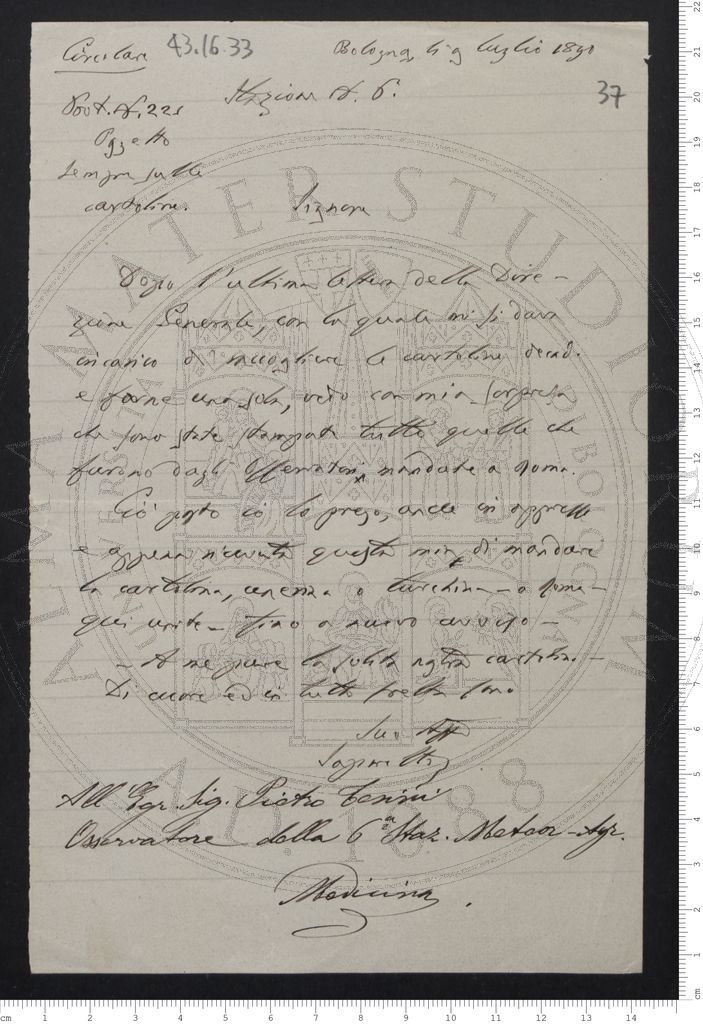 Circolare 43.16.33 Bologna, li 9 luglio 1890
Stazione N. 6. 37
Prot. N. 221
Oggetto
Sempre sulle
cartoline.
Signore
Dopo l'ultima lettera della Dire-
zione Generale, con la quale mi si dava
incarico di raccogliere le cartoline decad.
e farne una sola, vedo con mia sorpresa
che sono state stampate tutte quelle che
furono dagli Osservatori mandate a Roma.
Ciò posto io lo prego, anche in appresso
e appena ricevuta questa mia, di mandare
la cartolina, o turchina - a Roma -
qui unite - fino a nuovo avviso -
- A me pure la solita cartolina -
Di cuore ed in tutto
Suo Aff
All' Egr. Sig. Pietro
Osservatore della 6a Staz. Meteor-Agr.
Medicina.
ALMA MATER STUDIORUM
A.D. 1088